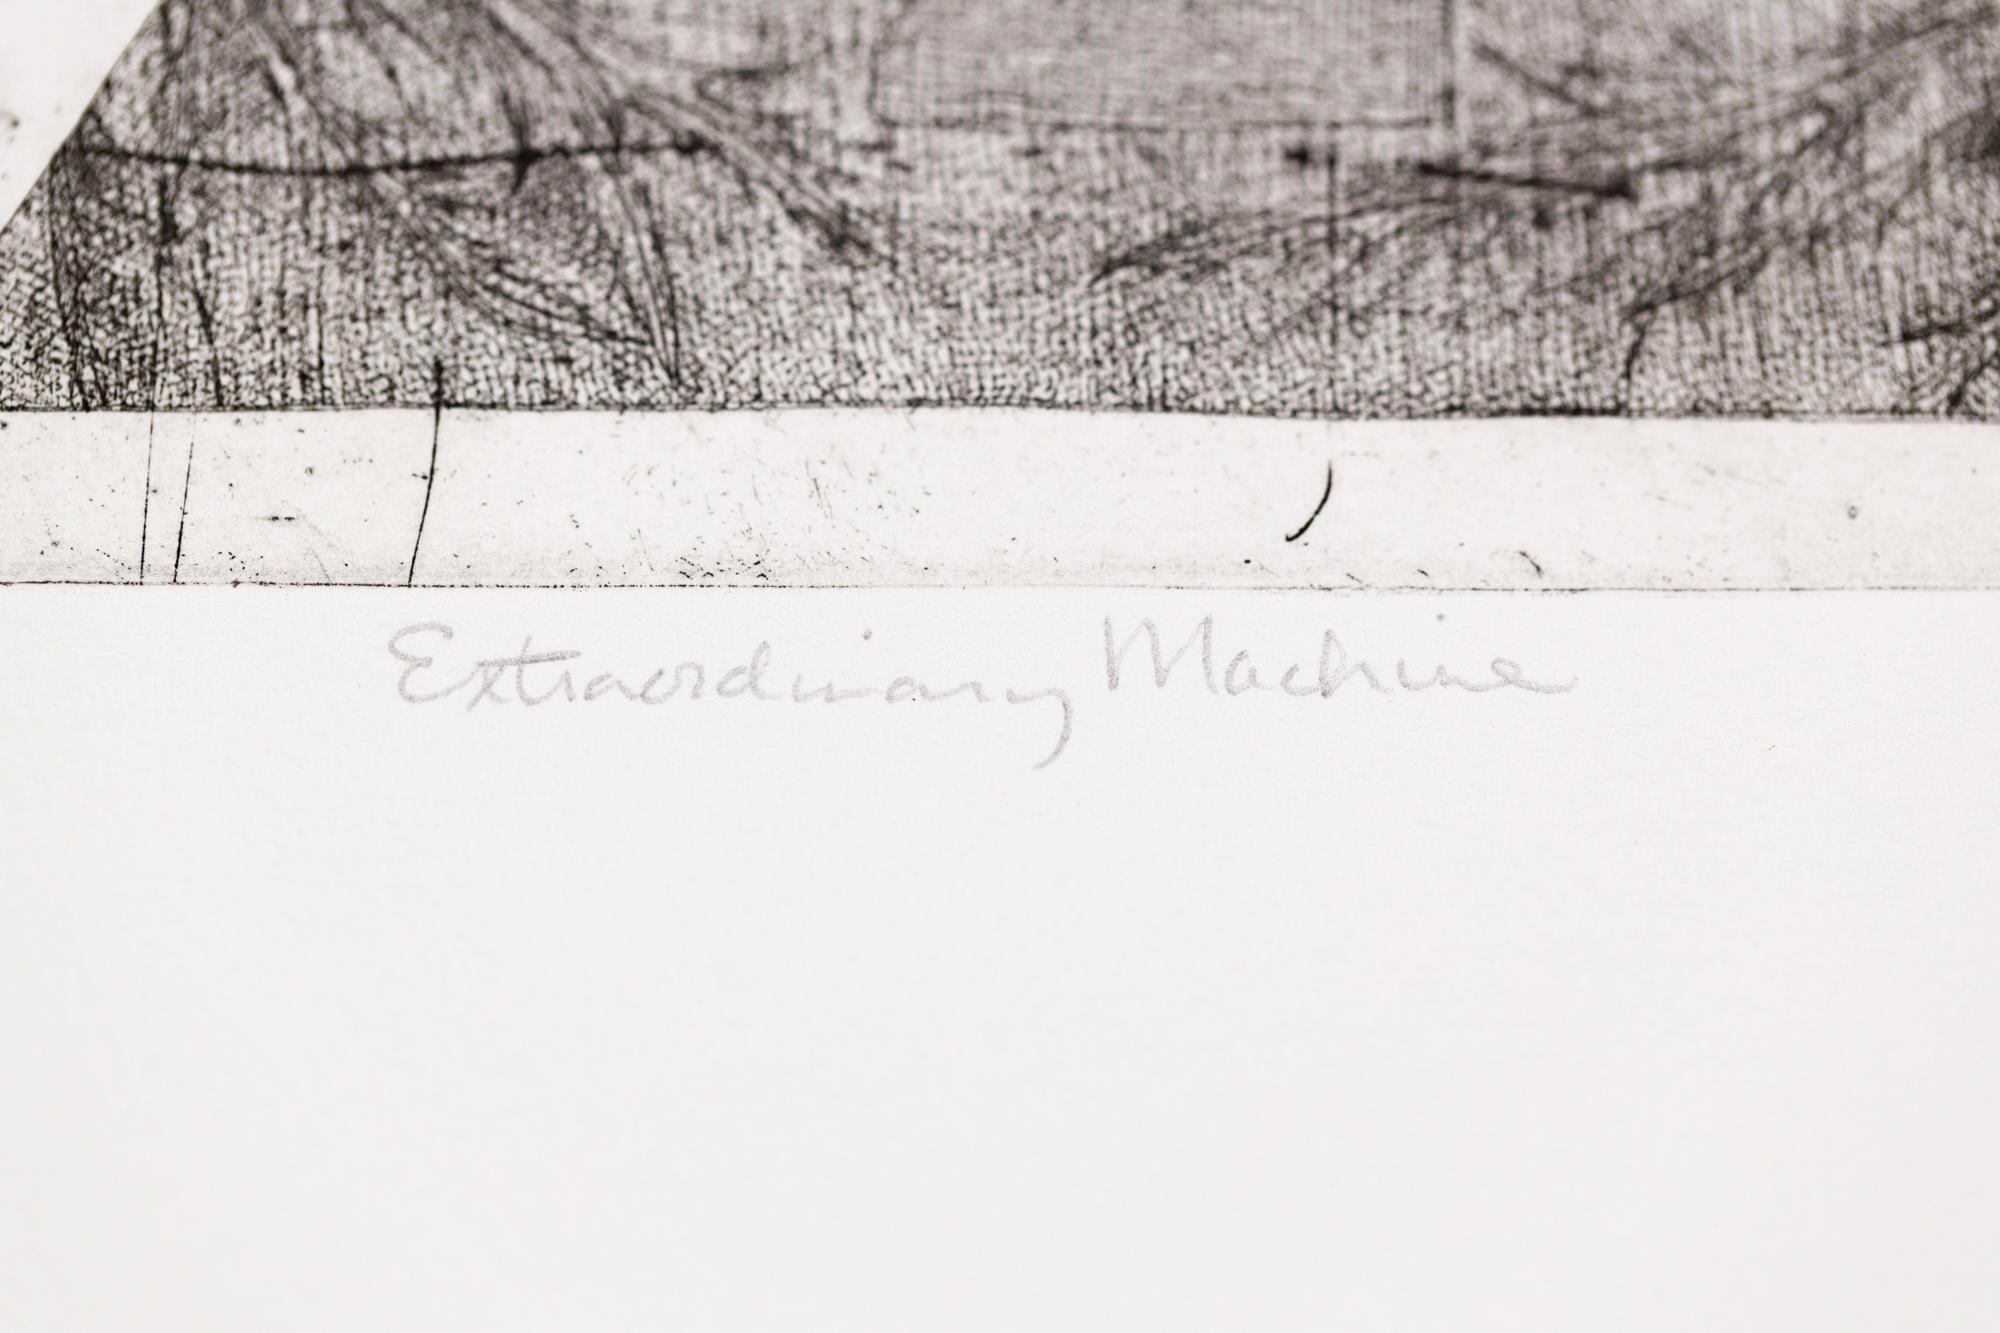 Extraordinary Machine